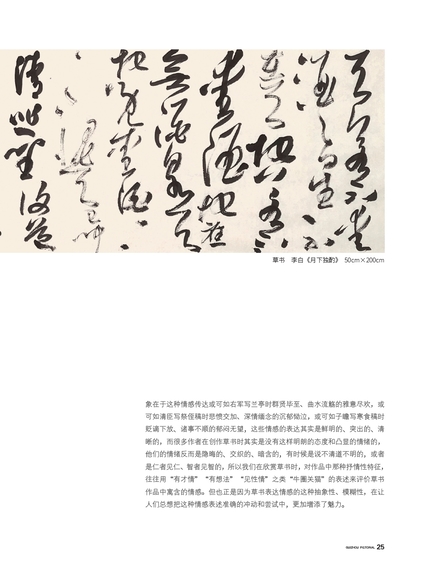 天若不愛
酒〻星不
在天地若不
愛酒地應
無酒泉天
地既愛酒
清比聖復道
草书　李白《月下独酌》　50cm×200cm
象在于这种情感传达或可如右军写兰亭时群贤毕至、曲水流觞的雅意尽欢，或
可如清臣写祭侄稿时悲愤交加、深情缅念的沉郁恸泣，或可如子瞻写寒食稿时
贬谪下放、诸事不顺的郁闷无望，这些情感的表达其实是鲜明的、突出的、清
晰的。而很多作者在创作草书时其实是没有这样明朗的态度和凸显的情绪的，
他们的情绪反而是隐晦的、交织的、暗含的，有时候是说不清道不明的，或者
是仁者见仁、智者见智的。所以我们在欣赏草书时，对作品中那种抒情性特征，
往往用“有才情”“有想法”“见性情”之类“牛圈关猫”的表述来评价草书
作品中寓含的情感。但也正是因为草书表达情感的这种抽象性、模糊性，在让
人们总想把这种情感表述准确的冲动和尝试中，更加增添了魅力。
GUIZHOU PICTORIAL 25